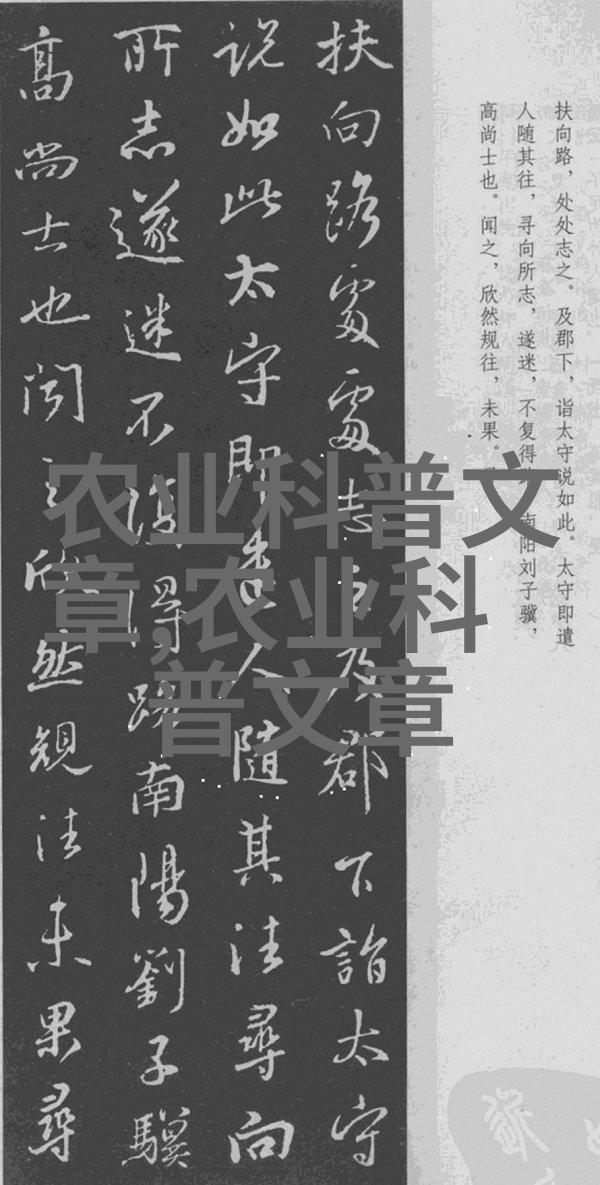 扶向路，处处志之。及郡下，诣太守说如此。太守即遣
人随其往，寻向所志，遂迷，不复得 南阳刘子骥，
高尚士也。闻之，欣然规往，未果。
扶向路處處志之及郡下詣太守
说如此太守即遣人隨其往尋向
所志遂迷不復得路南陽劉子驥
高尚士也闻之欣然規往未果尋
农业科普文
章,农业科
普文章